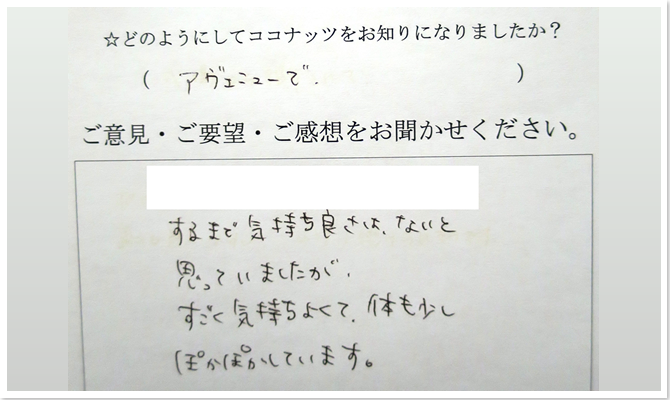 ☆どのようにしてココナッツをお知りになりましたか？
（ アヴェニューで. ）
ご意見・ご要望・ご感想をお聞かせください。
するまで気持ち良さは、ないと
思っていましたが、
すごく気持ちよくて、体も少し
ぽかぽかしています。